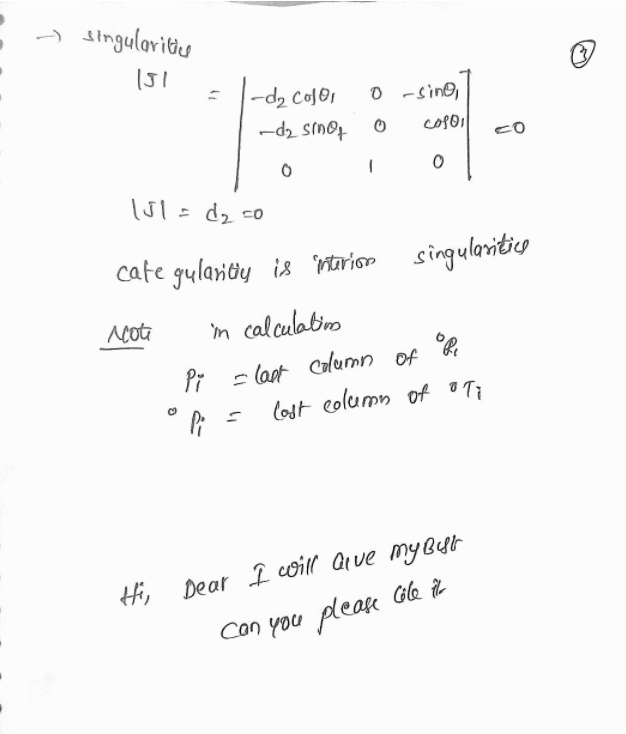 → singularities
③
|J| = | -d₂ cosθ₁ 0 -sinθ₁ |
| -d₂ sinθ₁ 0 cosθ₁ | =0
| 0 1 0 |
|J| = d₂ =0
cate gularity is interior singularities
Note in calculation
Pi = last column of
⁰Pi = last column of ⁰Ti
Hi, Dear I will Give my Best
Can you please it